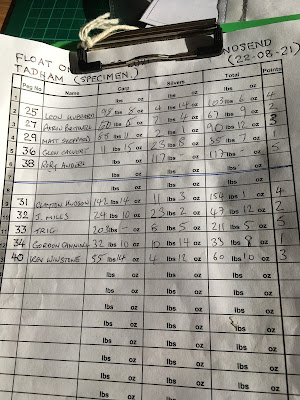 FLOAT ON NDSEND
TADHAM (SPECIMEN) (22-08-21)
Peg No Name Carp Silvers Total Points
lbs oz lbs oz lbs oz
25 LEON HUBBARD 98 lbs 8 oz 4 lbs 14 oz 103 lbs 6 oz 4
27 60 lbs 6 oz 67 lbs 2
29 MATT 88 lbs 11 oz 2 lbs 1 oz 90 lbs 12 oz 3
36 GLEN CALVERT 31 lbs 15 oz 23 lbs 8 oz 55 lbs 7 oz 1
38 117 lbs oz lbs oz 117 lbs oz 5
lbs oz lbs oz lbs oz
31 CLAYTON HUDSON 142 lbs 14 oz 11 lbs 3 oz 154 lbs 1 oz 4
32 J. MILLS 24 lbs 10 oz 23 lbs 2 oz 47 lbs 12 oz 2
33 TRIG 205 lbs oz 6 lbs 5 oz 211 lbs 5 oz 5
34 GORDON CANNINGS 32 lbs 10 oz 10 14 oz lbs 8 oz 1
40 KEV WINSTONE 55 lbs 14 oz 4 lbs 12 oz 60 lbs 10 oz 3
lbs oz lbs oz lbs oz
lbs oz lbs oz lbs oz
lbs oz lbs oz lbs oz
lbs oz lbs oz lbs oz
lbs oz lbs oz lbs oz
lbs oz lbs oz lbs oz
lbs oz lbs oz lbs oz